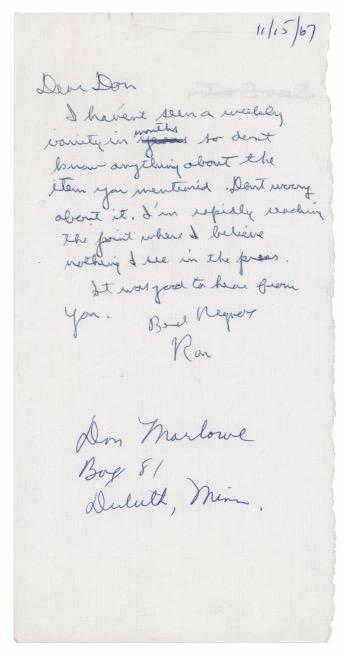 11/15/67
Dear Don
I haven't seen a weekly
variety in months so don't
know anything about the
item you mentioned. Don't worry
about it. I'm rapidly reaching
the point where I believe
nothing I see in the press.
It was good to hear from
you.
Best Regards
Ron
Don Marlowe
Box 81
Duluth, Minn.